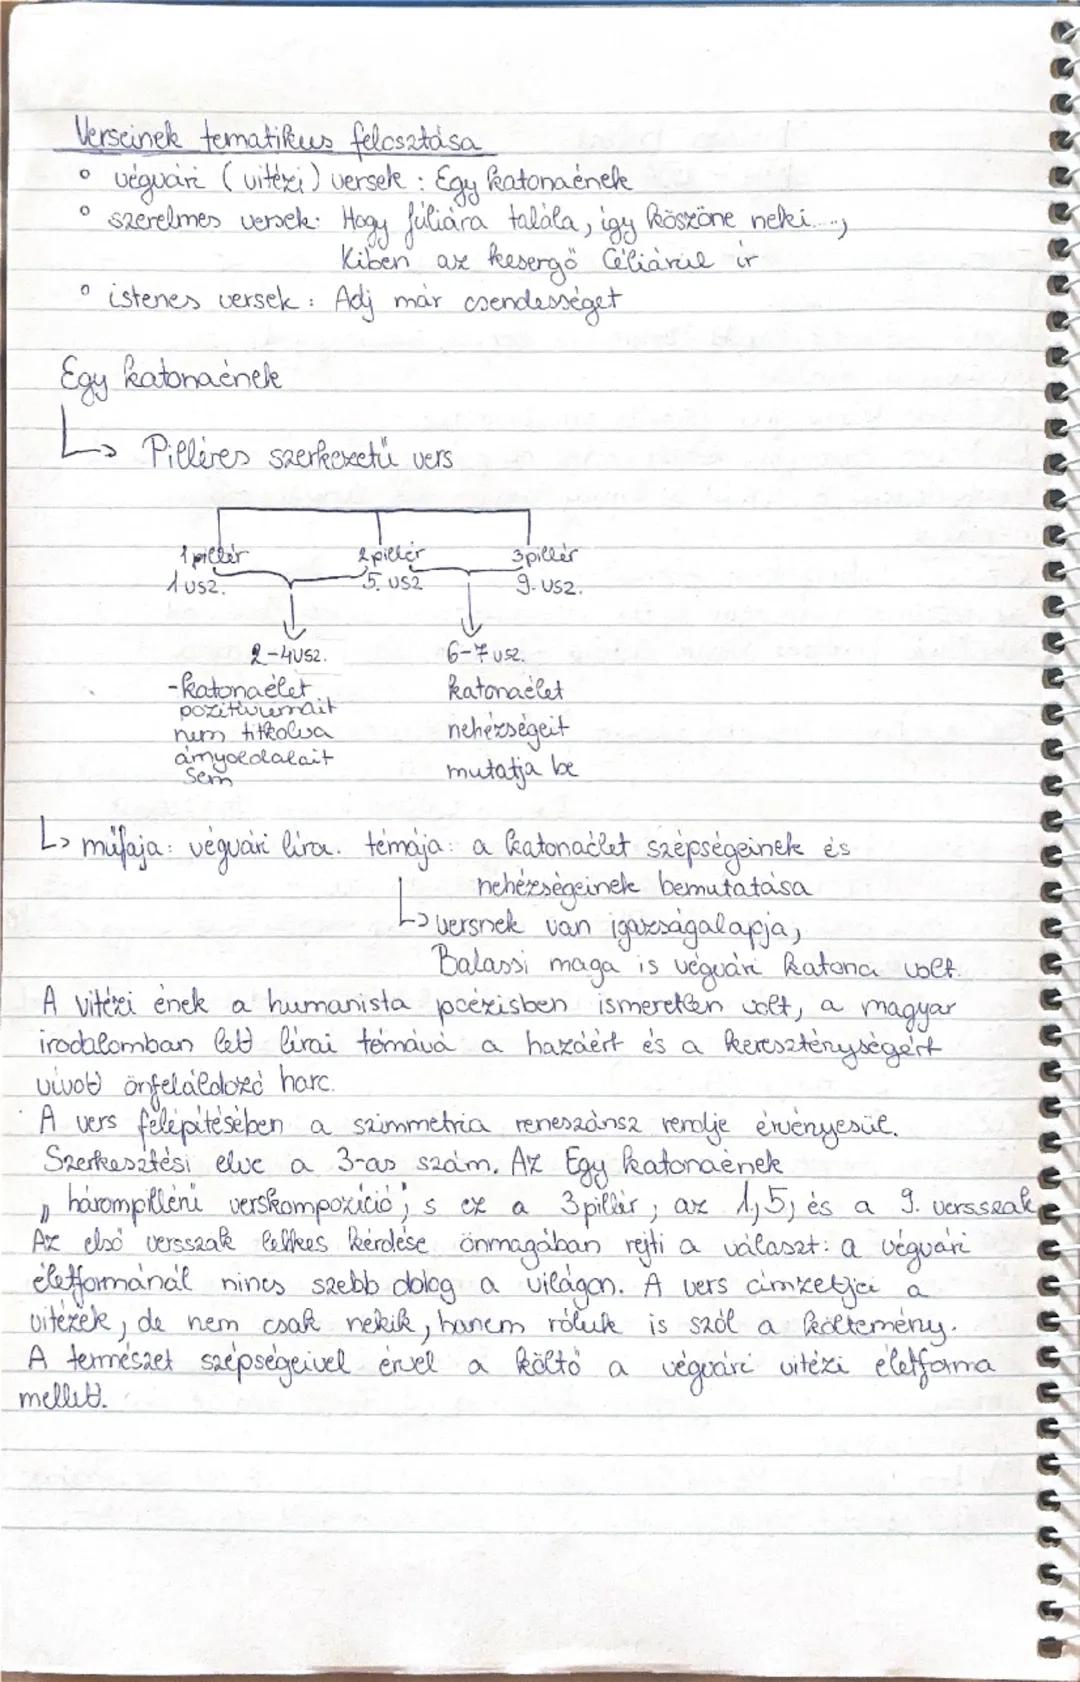 Verseinek tematikus felosztása
° végvári (vitézi) versek : Egy katonaének
° szerelmes versek: Hogy Júliára talála, így köszöne neki...,
Kiben az kesergő Céliárul ír
° istenes versek : Adj már csendességet
Egy katonaének
↳ Pilléres szerkezetű vers
1 pillér 2 pillér 3 pillér
1 vsz. 5. vsz 9. vsz.
2-4 vsz. 6-7 vsz.
- katonaélet katonaélet
pozitívumait
nem titkolva nehézségeit
árnyoldalait mutatja be
sem
↳ műfaja: végvári líra. témája: a katonaélet szépségeinek és
nehézségeinek bemutatása
↳ versnek van igazságalapja,
Balassi maga is végvári katona volt.
A vitézi ének a humanista poézisben ismeretlen volt, a magyar
irodalomban lett lírai témává a hazáért és a kereszténységért
vívott önfeláldozó harc.
A vers felépítésében a szimmetria reneszánsz rendje érvényesül.
Szerkesztési elve a 3-as szám. Az Egy katonaének
„hárompillérű verskompozíció”, s ez a 3 pillér, az 1, 5, és a 9. versszak.
Az első versszak lelkes kérdése önmagában rejti a választ: a végvári
életformánál nincs szebb dolog a világon. A vers címzetjei a
vitézek, de nem csak nekik, hanem róluk is szól a költemény.
A természet szépségeivel érvel a költő a végvári vitézi életforma
mellett.